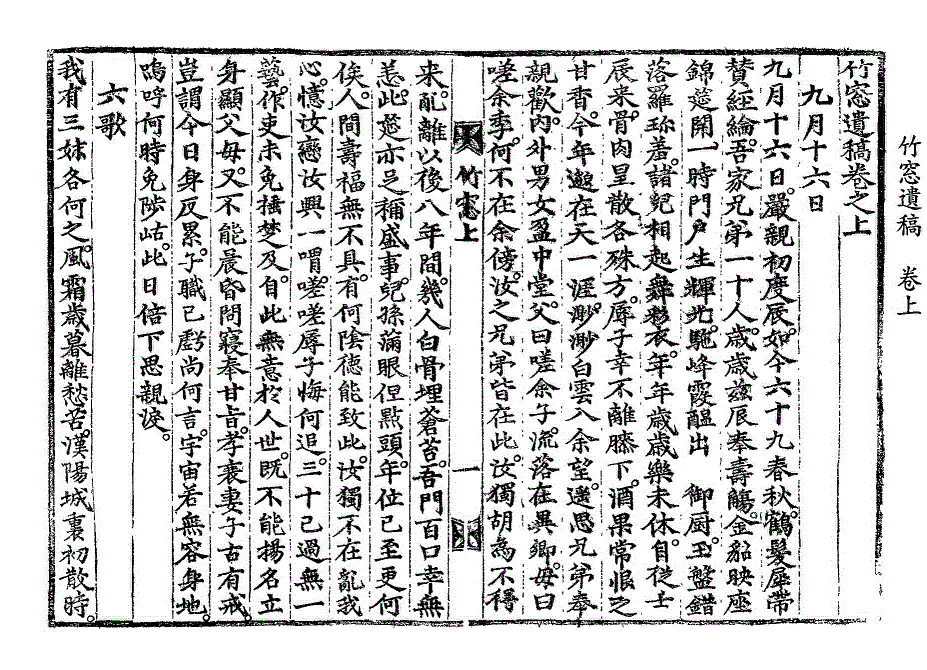 竹窓遺稿 卷上
竹窓遺稿卷之上
九月十六日
九月十六日。嚴親初度辰。如今六十九春秋。鶴髮犀帶
贊經綸。吾家兄弟一十人。歲歲玆辰奉壽觴。金貂映座
錦筵開。一時門户生輝光。駝峰霞醞出 御厨。玉盤錯
落羅珎羞。諸兒相起舞彩衣。年年歲歲樂未休。自從壬
辰来。骨肉星散各殊方。辱子幸不離膝下。酒果常恨乏
甘香。今年邈在天一涯。渺渺白雲入余望。遙思兄弟奉
親歡。內外男女盈中堂。父曰嗟余子。流落在異鄉。母曰
嗟余季。何不在余傍。汝之兄弟皆在此。汝獨胡爲不得
来。亂離以後八年間。幾人白骨埋蒼苔。吾門百口幸無
恙。此筵亦足稱盛事。兒孫滿眼但點頭。年位已至更何
俟。人間壽福無不具。有何陰德能致此。汝獨不在亂我
心。憶汝戀汝興一喟。嗟嗟辱子悔何追。三十已過無一
藝。作吏未免捶楚及。自此無意於人世。旣不能揚名立
身顯父母。又不能晨昏問寢奉甘旨。孝衰妻子古有戒。
豈謂今日身反累。子職已虧尚何言。宇宙若無容身地。
嗚呼何時免陟岵。此日倍下思親淚。
六歌
我有三妹各何之。風霜歲暮離愁苦。漢陽城裏初散時。
竹窓上
一